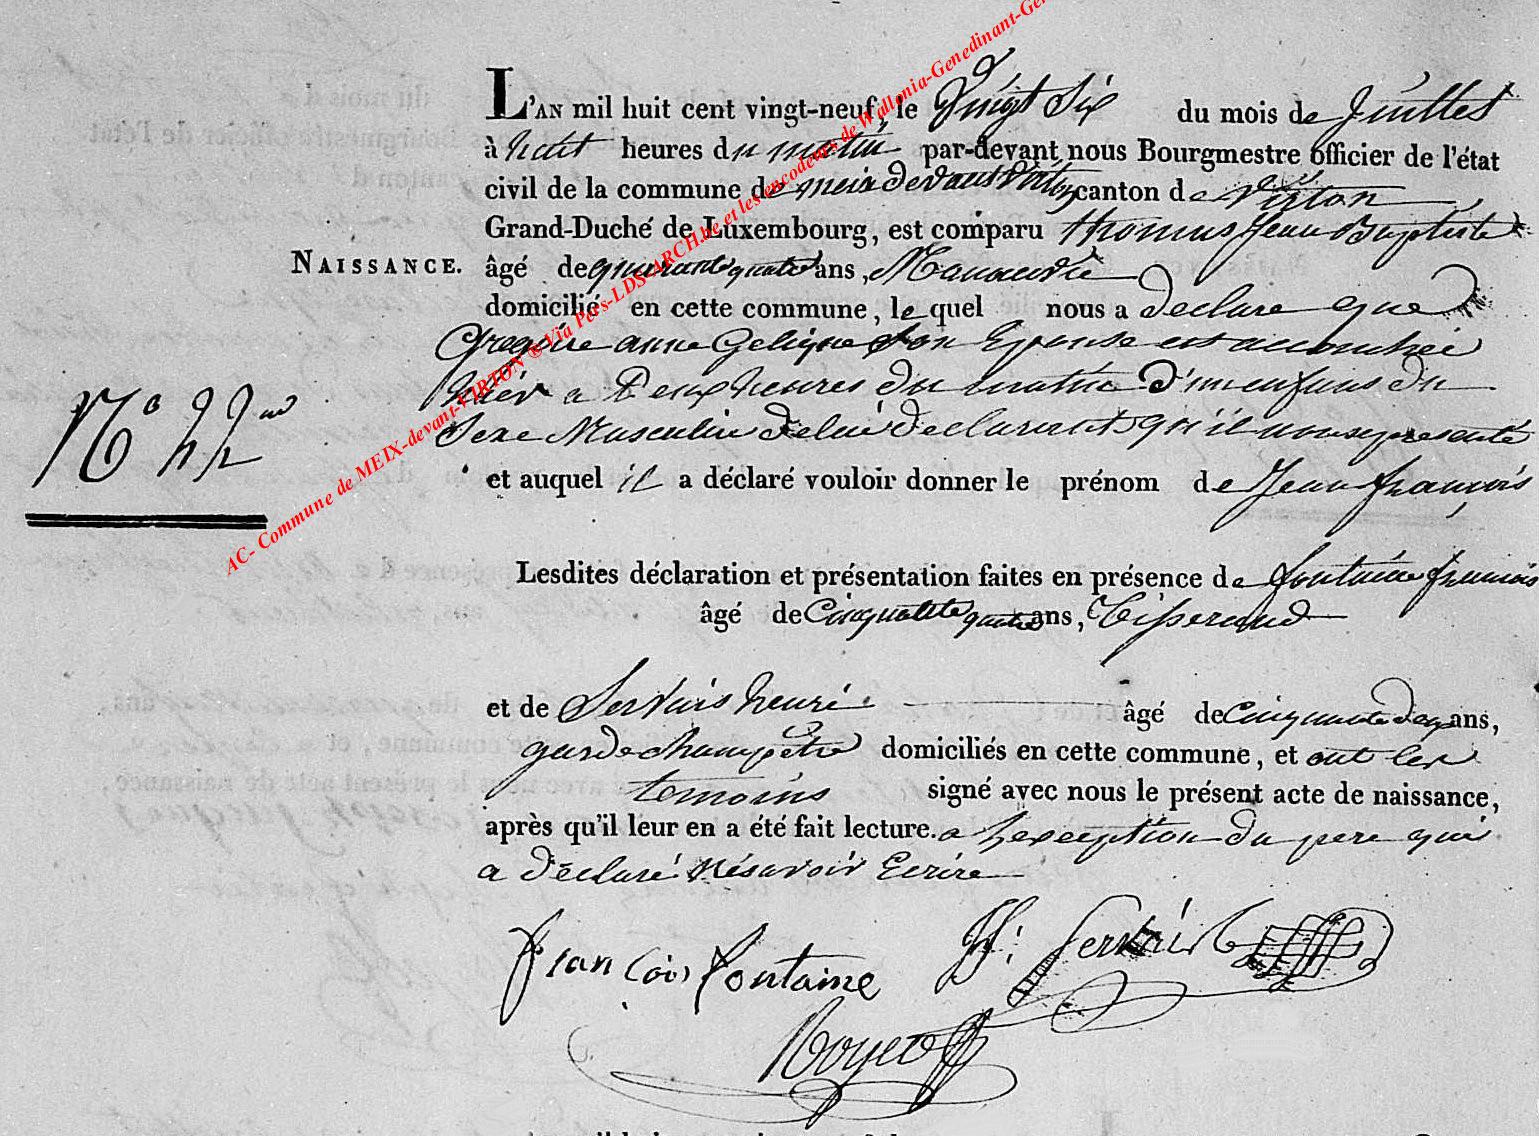 L'AN mil huit cent vingt-neuf, le Vingt Six du mois de Juillet
à huit heures du matin par-devant nous Bourgmestre officier de l'état
civil de la commune de meix devant Virton canton de Virton
Grand-Duché de Luxembourg, est comparu thomas Jean Baptiste
NAISSANCE. âgé de quarante quatre ans, Manœuvre
domicilié en cette commune, le quel nous a declare que
Gregoire anne Son Epouse est accouchée
hier a Deux heures du matin d'un enfans du
N° 22
Sexe Masculin de lui declarant qu'il nous a presenté
et auquel il a déclaré vouloir donner le prénom de Jean françois
Lesdites déclaration et présentation faites en présence de fontaine francois
âgé de Cinquante quatre ans, Tisserand
et de Servais henri âgé de Cinquante deux ans,
garde champêtre domiciliés en cette commune, et ont les
temoins signé avec nous le présent acte de naissance,
après qu'il leur en a été fait lecture. a l'exception du pere qui
a declaré ne savoir Ecrire
francois fontaine H: Servais
AC- Commune de MEIX-devant-VIRTON ® Via Pers-LDS-ARCH.be et les encodeurs de Wallonia-Genedinant-Ge